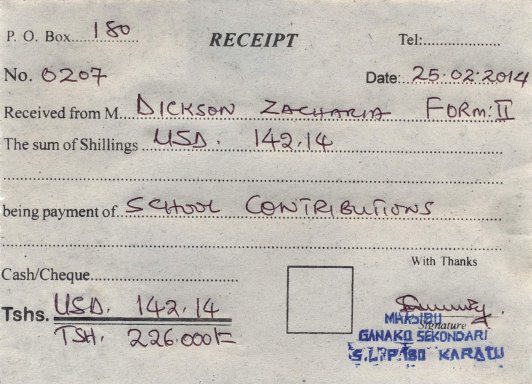 P. O. Box 180 RECEIPT Tel:
No. 0207 Date: 25.02.2014
Received from M. DICKSON ZACHARIA FORM: II
The sum of Shillings USD. 142.14
being payment of SCHOOL CONTRIBUTIONS
With Thanks
Cash/Cheque
Tshs. USD. 142.14
TSH. 226.000/=
MHASIBU
Signature
GANAKO SEKONDARI
S.L.P. 180 KARATU